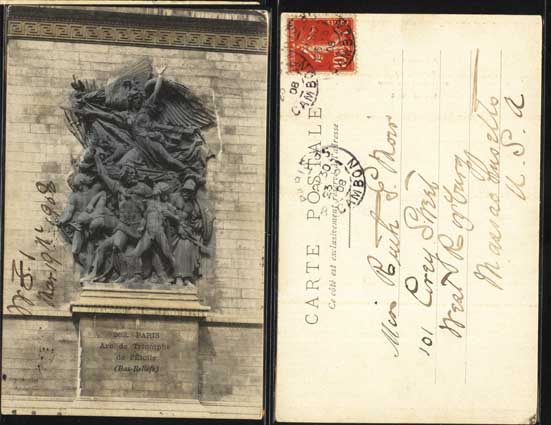 203. PARIS
Arc de Triomphe
de l'Etoile
(Bas-Reliefs)
Nov 19th 1908
CARTE POSTALE
Ce côté est exclusivement réservé à l'adresse
Miss Ruth S.
101 Corey Street
West Roxbury
Massachusetts
U. S. A
10
23
08
CAMBON